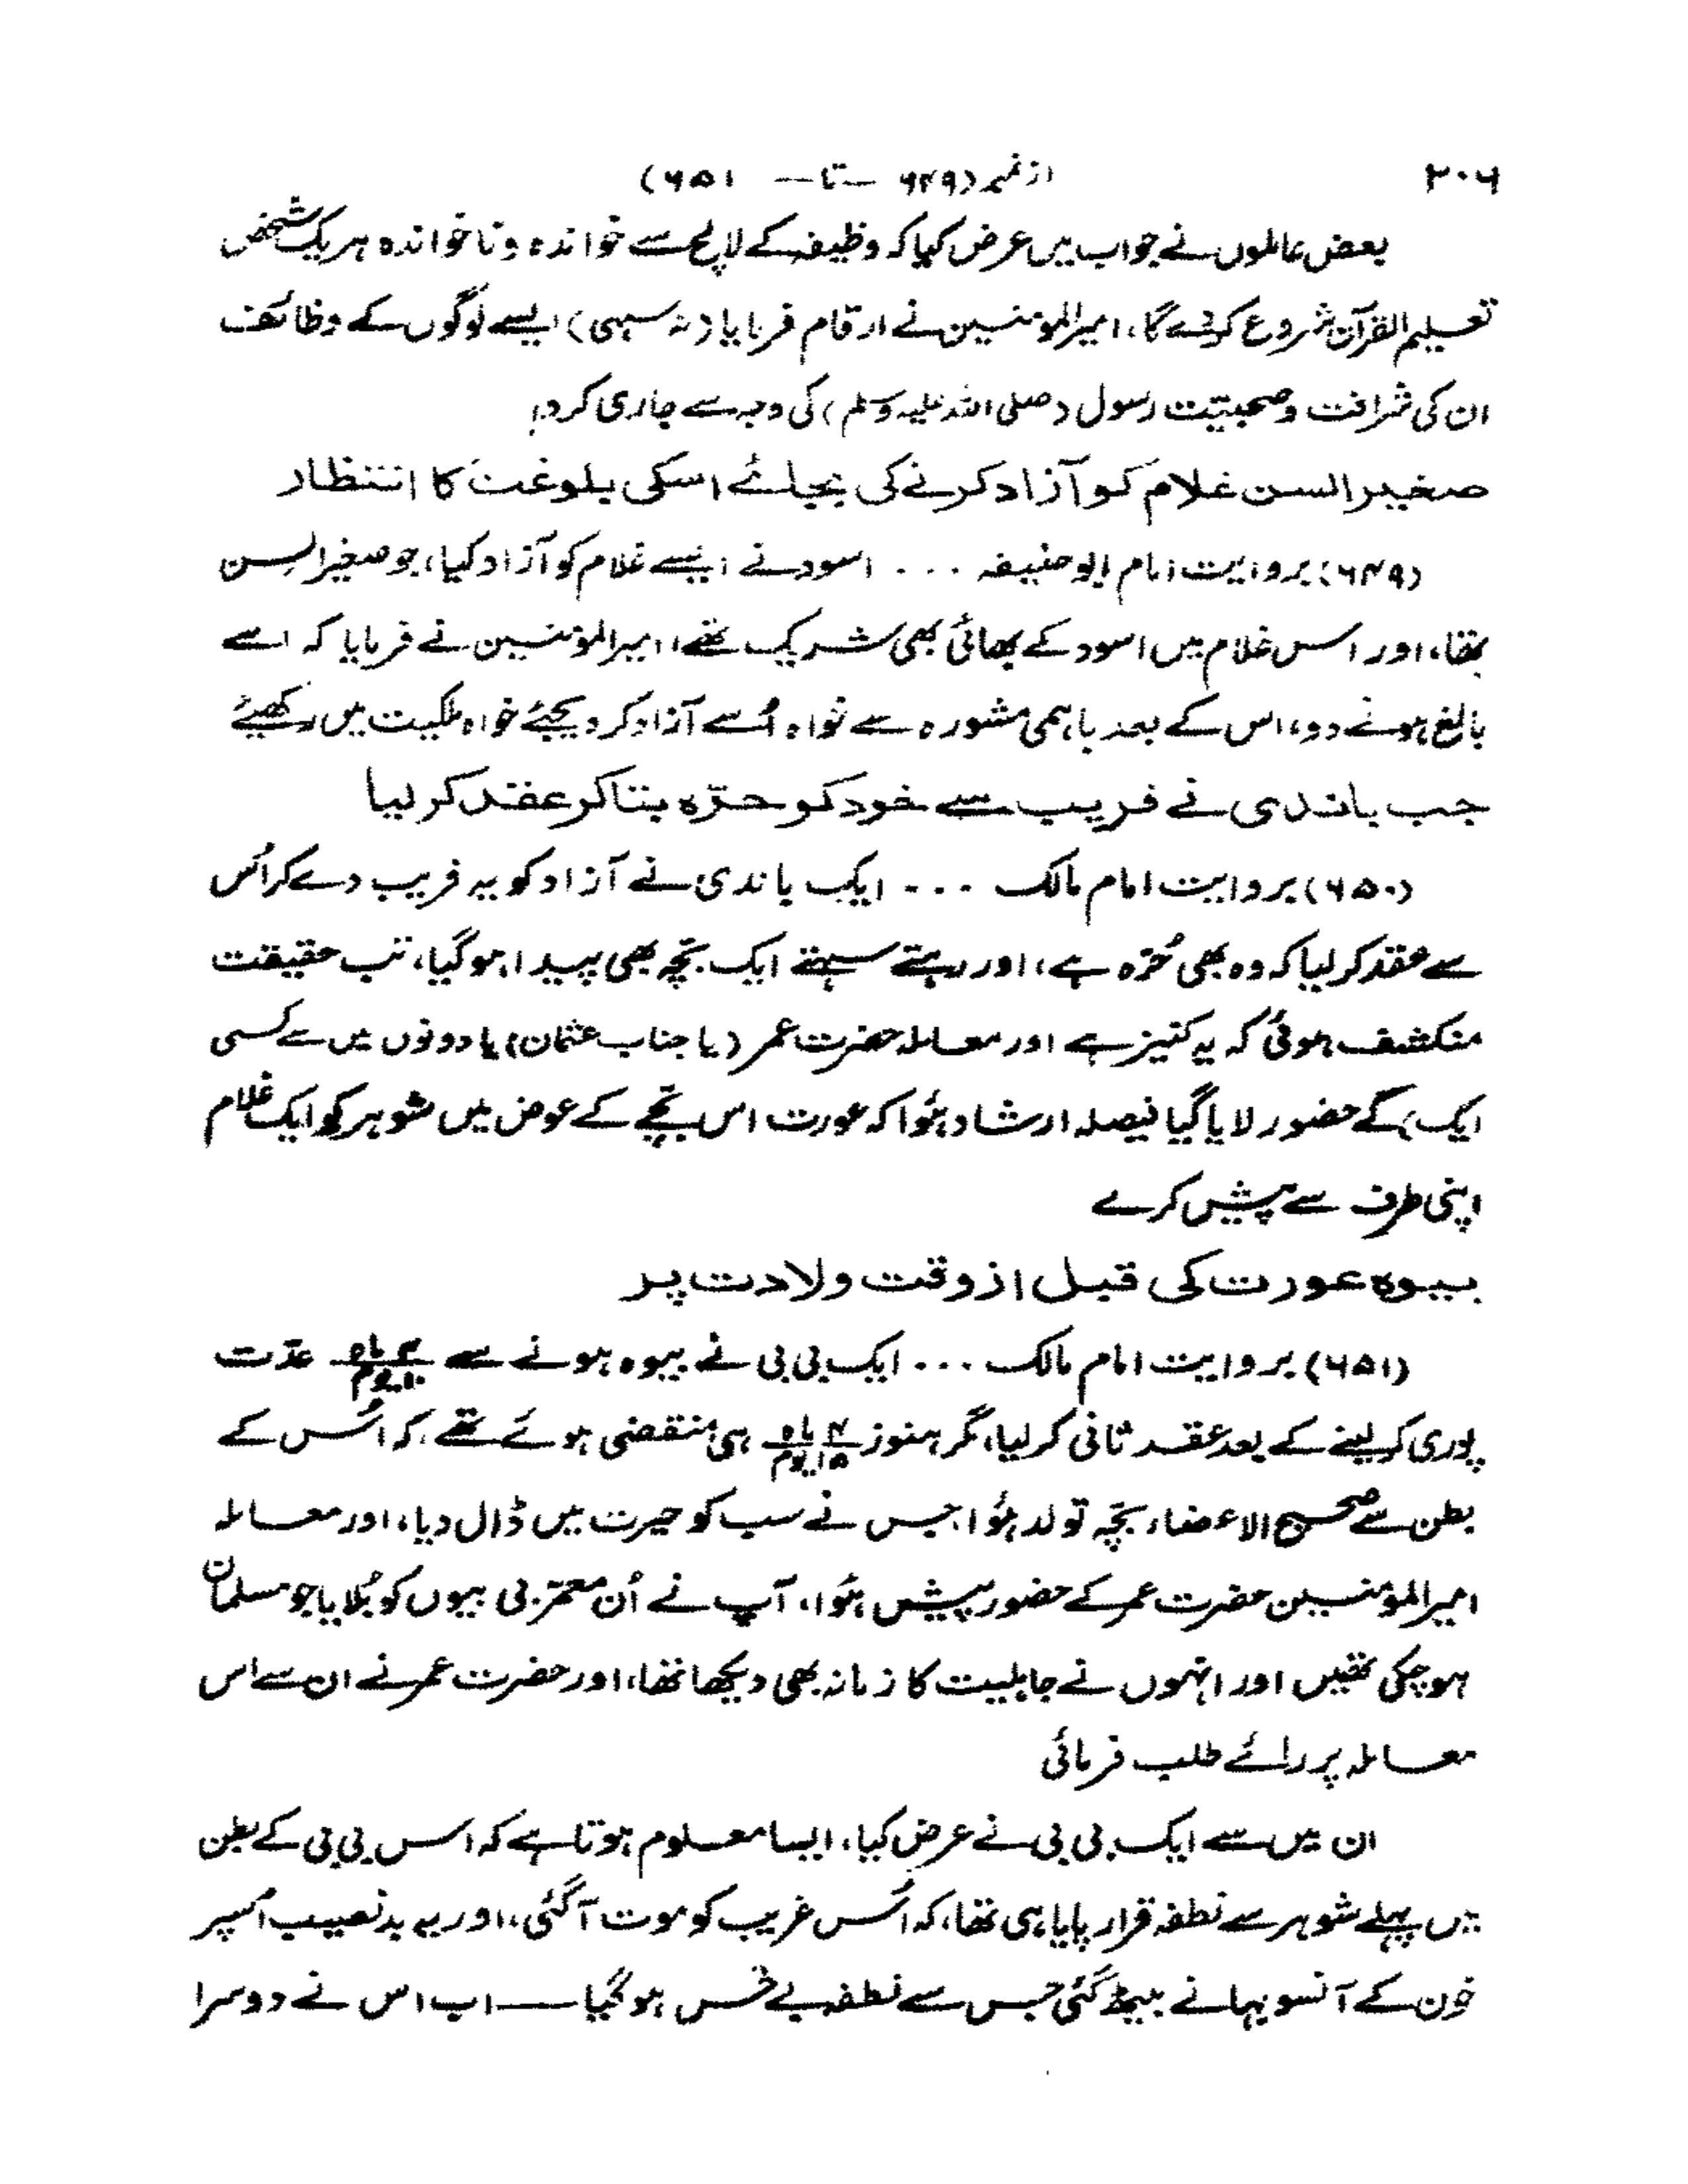 ۳۰۶
از نمبر (۶۴۹ — تا — ۶۵۱)
بعض عاملوں نے جواب میں عرض کیا کہ وظیفہ کے لالچ سے خواندہ و ناخواندہ ہر یک شخص
تعلیم القرآن شروع کردے گا، امیرالمؤمنین نے ارقام فرمایا (نہ سہی) ایسے لوگوں کے وظائف
ان کی شرافت و صحبیّت رسول (صلی اللہ علیہ وسلم) کی وجہ سے جاری کردو
صغیر السن غلام کو آزاد کرنے کی بجائے اسکی بلوغت کا انتظار
(۶۴۹) بروایت امام ابو حنیفہ ... اسود نے ایسے غلام کو آزاد کیا، جو صغیر السن
تھا، اور اس غلام میں اسود کے بھائی بھی شریک تھے، امیرالمؤمنین نے فرمایا کہ اسے
بالغ ہونے دو، اس کے بعد باہمی مشورہ سے خواہ اُسے آزاد کر دیجئے خواہ ملکیت میں رکھیئے
جب باندی نے فریب سے خود کو حرّہ بتا کر عقد کر لیا
(۶۵۰) بروایت امام مالک ... ایک باندی نے آزاد کو یہ فریب دے کر اُس
سے عقد کر لیا کہ وہ بھی حُرّہ ہے، اور رہتے سہتے ایک بچّہ بھی پیدا ہو گیا، تب حقیقت
منکشف ہوئی کہ یہ کنیز ہے اور معاملہ حضرت عمر (یا جناب عثمان) یا دونوں میں سے کسی
ایک) کے حضور لایا گیا فیصلہ ارشاد ہُوا کہ عورت اس بچّے کے عوض میں شوہر کو ایک غلام
اپنی طرف سے پیش کرے
بیوہ عورت کی قبل از وقت ولادت پر
(۶۵۱) بروایت امام مالک ... ایک بی بی نے بیوہ ہونے سے ۴ ماہ ۱۰ یوم عدّت
پوری کر لینے کے بعد عقد ثانی کر لیا، مگر ہنوز ۴ ماہ ۱۵ یوم ہی منقضی ہوئے تھے کہ اُس کے
بطن سے صحیح الاعضاء بچّہ تولد ہُوا، جس نے سب کو حیرت میں ڈال دیا، اور معاملہ
امیرالمؤمنین حضرت عمر کے حضور پیش ہُوا، آپ نے اُن معمّر بی بیوں کو بُلایا جو مسلمان
ہوچکی تھیں اور انہوں نے جاہلیت کا زمانہ بھی دیکھا تھا، اور حضرت عمر نے ان سے اس
معاملہ پر رائے طلب فرمائی
ان میں سے ایک بی بی نے عرض کیا، ایسا معلوم ہوتا ہے کہ اس بی بی کے بطن
میں پہلے شوہر سے نطفہ قرار پایا ہی تھا، کہ اُس غریب کو موت آگئی، اور یہ بدنصیب اُسپر
خون کے آنسو بہانے بیٹھ گئی جس سے نطفہ بے حس ہو گیا — اب اس نے دوسرا